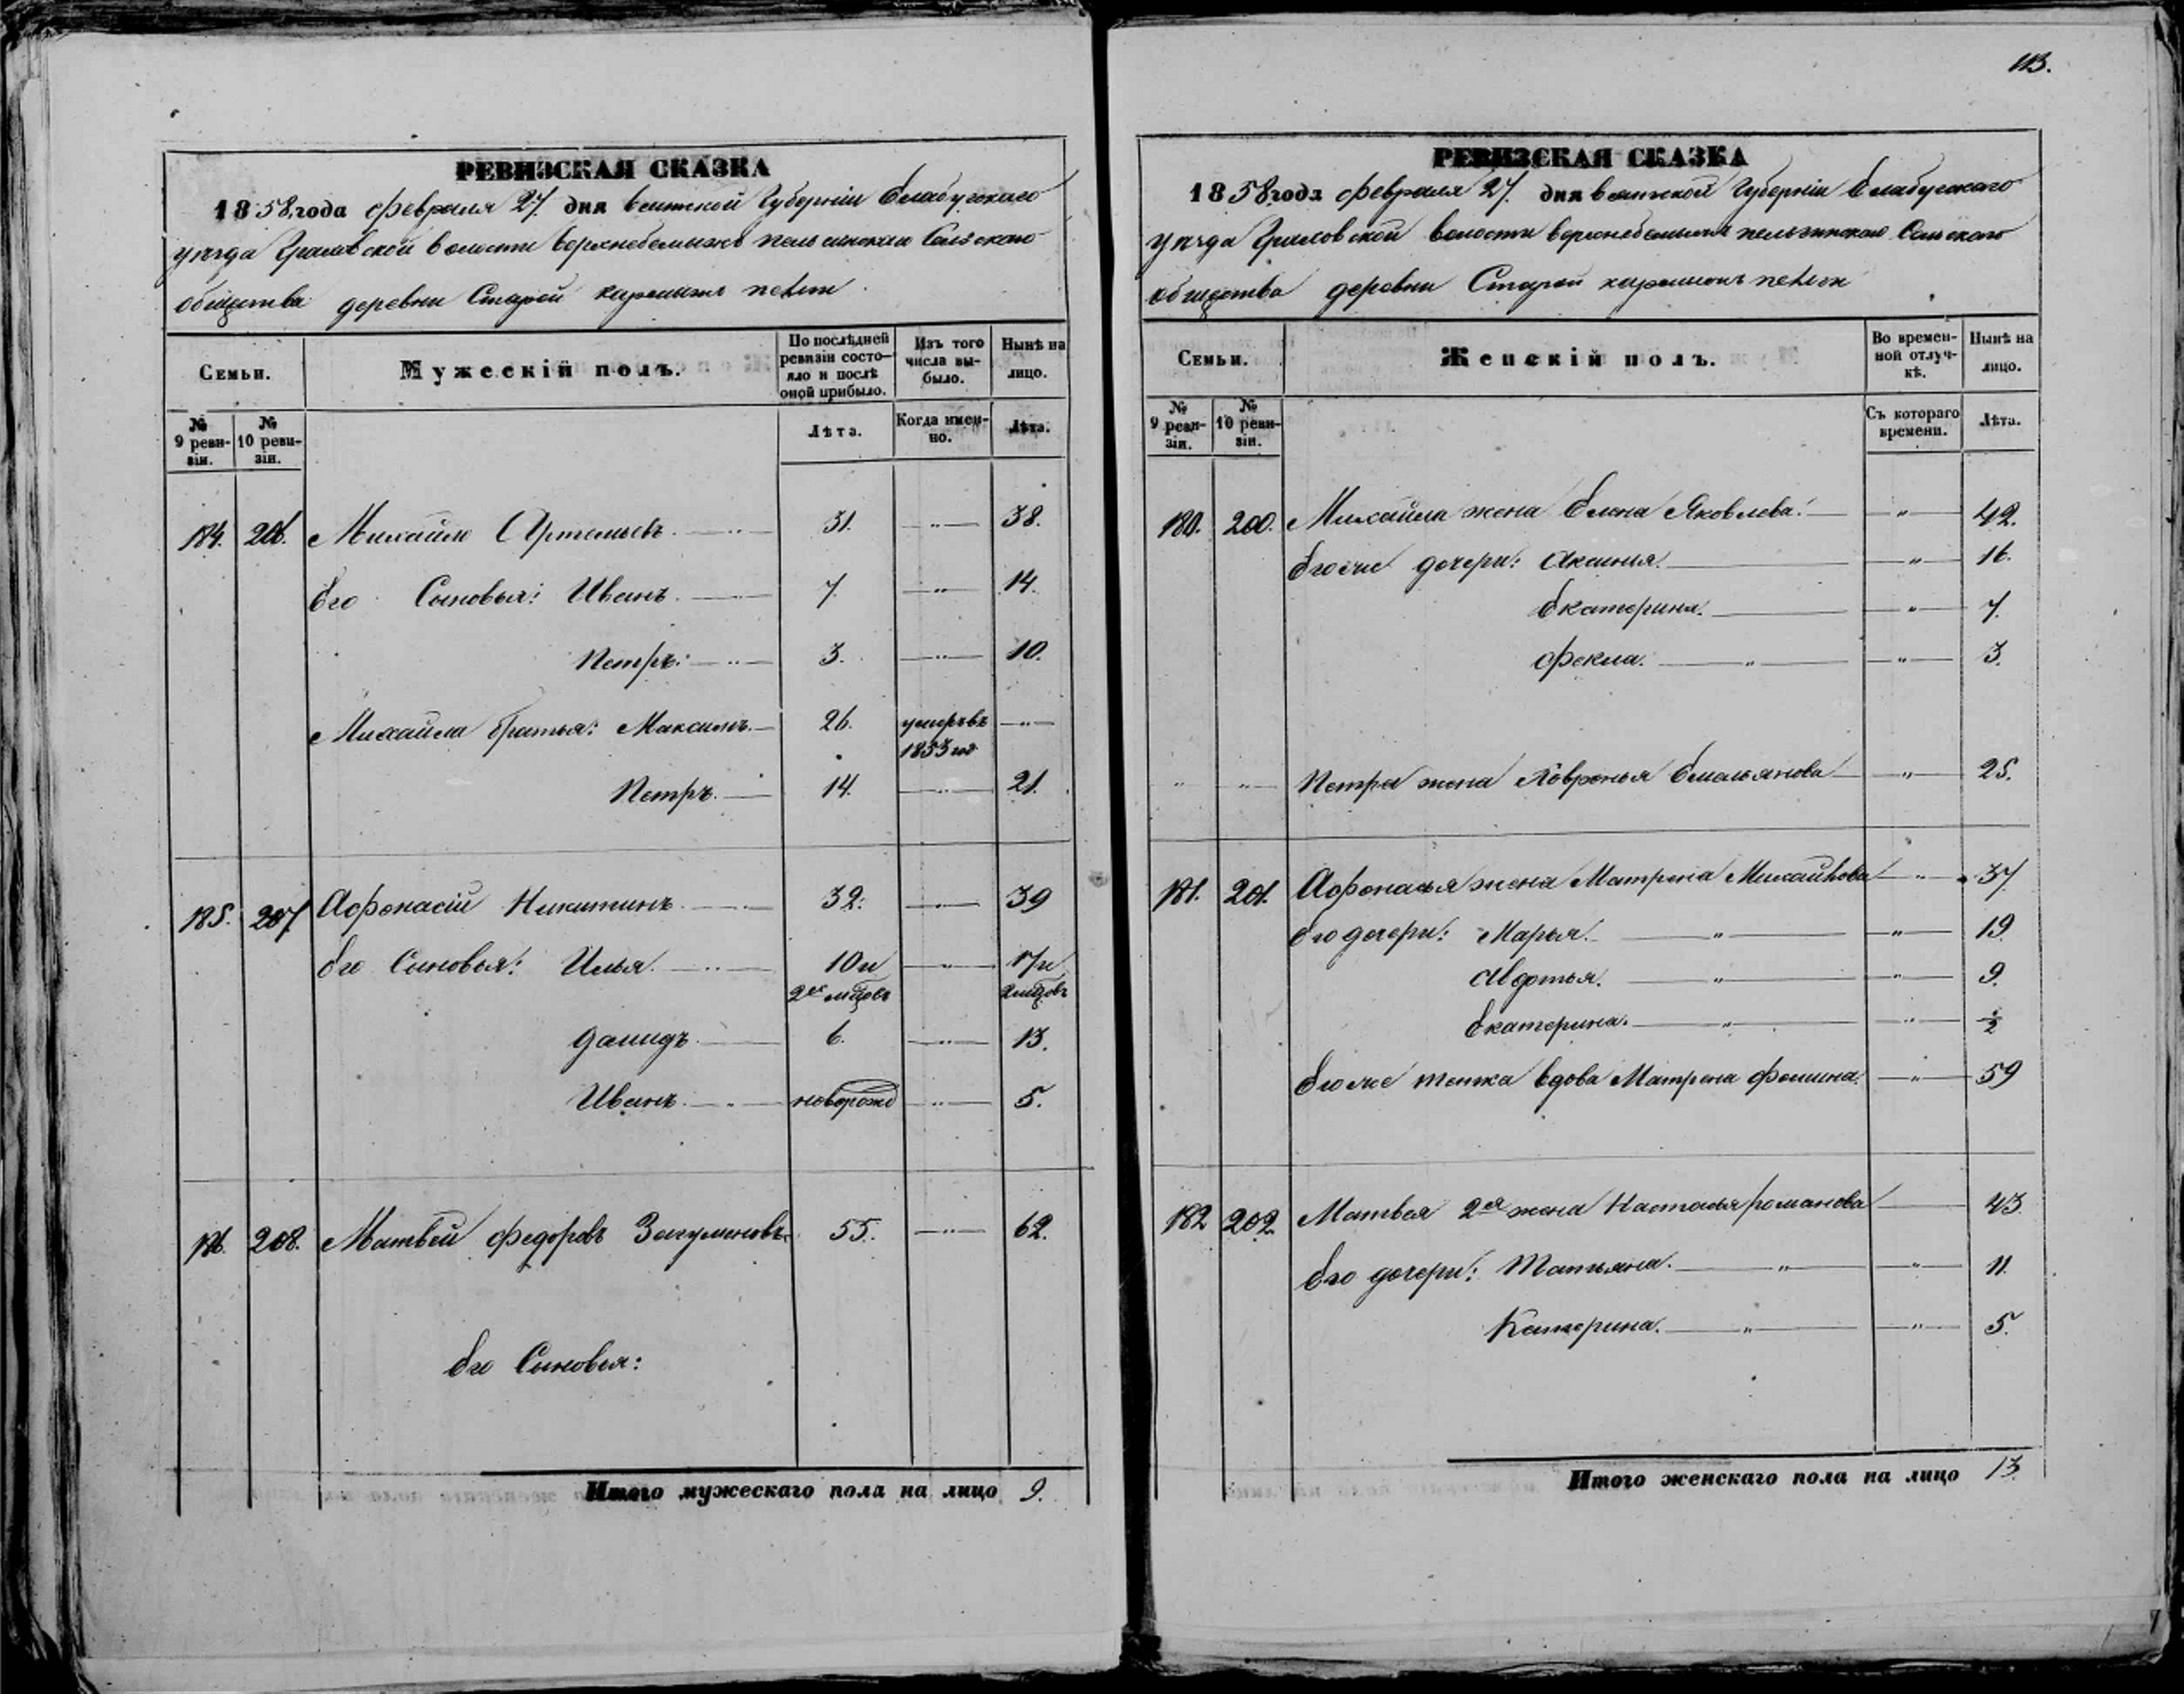 113.
РЕВИЗСКАЯ СКАЗКА
1858 года февраля 27. дня вятской Губерніи Елабугскаго
уѣзда волости Сельскаго
общества деревни Старой
Семьи.
Мужескій полъ.
По послѣдней ревизіи состояло и послѣ оной прибыло.
Изъ того числа выбыло.
Нынѣ на лицо.
№ 9 ревизіи.
№ 10 ревизіи.
Лѣта.
Когда именно.
Лѣта.
184. 206. Михайло Артемьевъ. 31. — 38.
Его Сыновья: Иванъ. 7. — 14.
Петръ. 3. — 10.
Михайла братья: Максимъ. 26. умеръ въ 1853 год —
Петръ. 14. — 21.
185. 207 Афонасій Никитинъ. 32. — 39
Его Сыновья: Илья. 10 и 2хъ мцовъ — 17 и 2 мцовъ
Давидъ. 6. — 13.
Иванъ. новорожд — 5.
186. 208. Матвей федоровъ 55. — 62.
Его Сыновья:
Итого мужескаго пола на лицо 9.
РЕВИЗСКАЯ СКАЗКА
1858 года февраля 27. дня вятской Губерніи Елабугскаго
уѣзда волости Сельскаго
общества деревни Старой
Семьи.
Женскій полъ.
Во временной отлучкѣ.
Нынѣ на лицо.
№ 9 ревизіи.
№ 10 ревизіи.
Съ котораго времени.
Лѣта.
180. 200. Михайла жена Елена Яковлева. — " — 42.
Его же дочери: Аксинья. — " — 16.
Екатерина. — " — 7.
Фекла. — " — — " — 3.
" " Петра жена Емельянова — " — 25.
181. 201. Афонасья жена Матрена Михайлова — " — 37
Его дочери: Марья. — " — — " — 19
Авдотья. — " — — " — 9.
Екатерина. — " — — " — ½
Его же тетка вдова Матрена Фомина. — " — 59
182 202. Матвея 2ая жена Настасья романова — 43
Его дочери: Татьяна. — " — — " — 11.
Катерина. — " — — " — 5.
Итого женскаго пола на лицо 13